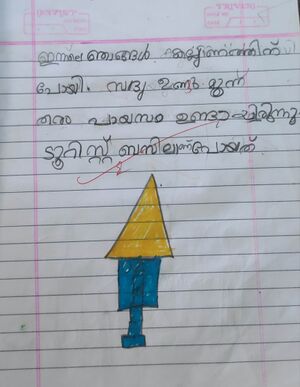 ഇന്നലെ ഞങ്ങൾ കല്യാണത്തിന്
പോയി. സദ്യ ഉണ്ടു മൂന്ന്
തരം പായസം ഉണ്ടായിരുന്നു.
ടൂറിസ്റ്റ് ബസിലാണ് പോയത്